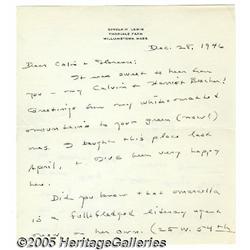 SINCLAIR LEWIS
THORVALE FARM
WILLIAMSTOWN, MASS.
Dec. 28, 1946
Dear Calvin + Florence:
It was sweet to hear from
you - my Calvin + Harriet Beecher!
Greetings from my white-coated
mountains to your green (now!)
ones. I bought this place last
April, + I've been very happy
here.
Did you know that Marcella
is a fullfledged literary agent
now, on her own. (25 W. 54th
©2005 HeritageGalleries